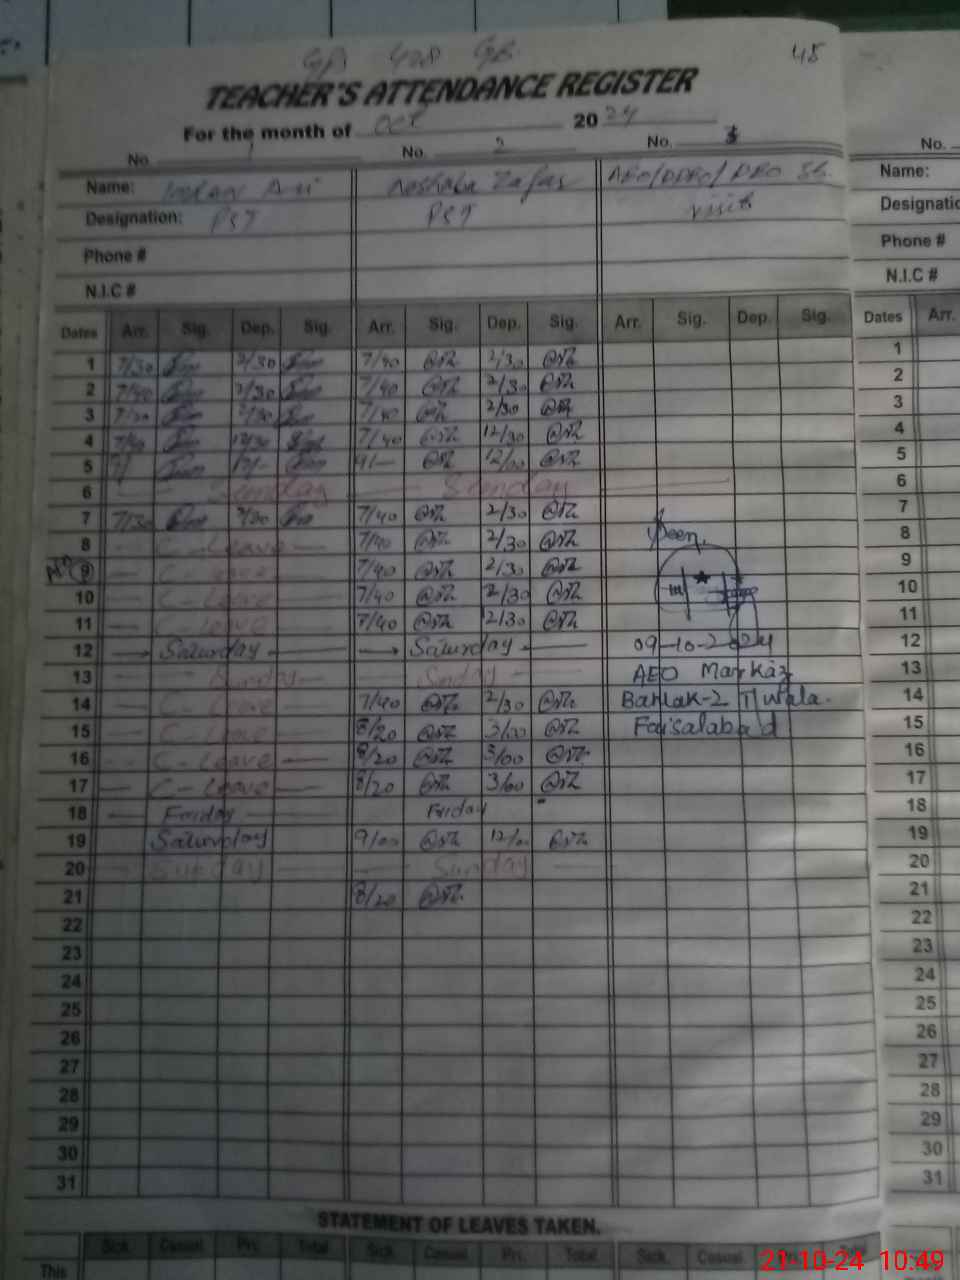 45
TEACHER'S ATTENDANCE REGISTER
For the month of Oct 2024
No. 1 No. 2 No. 3 No.
Name: Ali Zafar AEO/DDEO/DEO Name:
Designation: PST PST visit Designatio
Phone # Phone #
N.I.C # N.I.C #
Dates Arr. Sig. Dep. Sig. Arr. Sig. Dep. Sig. Arr. Sig. Dep. Sig. Dates Arr.
1 7/30 2/30 7/40 2/30 1
2 7/40 2/30 7/40 2/30 2
3 2/30 7/40 2/30 3
4 7/40 12/30 7/40 12/30 4
5 9/- 12/- 9/- 12/00 5
6 Sunday Sunday 6
7 7/30 2/30 7/40 2/30 7
8 C-Leave 7/40 2/30 Seen. 8
9 C-Leave 7/40 2/30 9
10 C-Leave 7/40 2/30 10
11 C-Leave 7/40 2/30 11
12 Saturday Saturday 09-10-2024 12
13 Sunday Sunday AEO Markaz 13
14 C-Leave 7/40 2/30 Bahlak-2 T/Wala. 14
15 C-Leave 8/20 3/00 Faisalabad 15
16 C-Leave 8/20 3/00 16
17 C-Leave 8/20 3/00 17
18 Friday Friday 18
19 Saturday 9/00 12/00 19
20 Sunday Sunday 20
21 8/20 21
22 22
23 23
24 24
25 25
26 26
27 27
28 28
29 29
30 30
31 31
STATEMENT OF LEAVES TAKEN.
Sick. Casual. Pri. Total Sick. Casual. Pri. Total Sick. Casual.
This
21-10-24 10:49